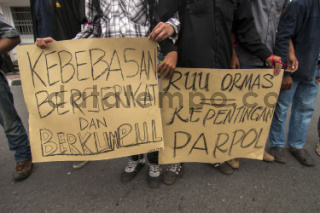 KEBEBASAN
BERSERIKAT
DAN
BERKUMPUL
RUU ORMAS
=
KEPENTINGAN
PARPOL
datatempo.co